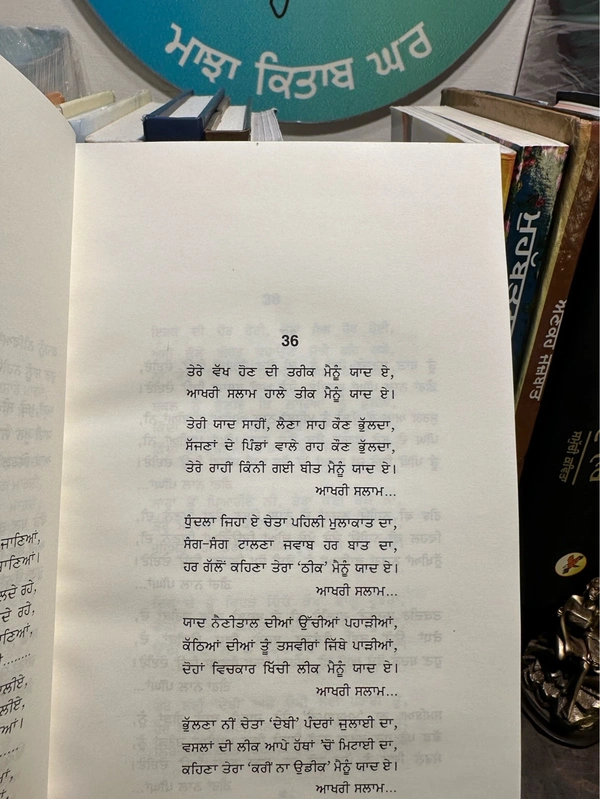 ਮਾਝਾ ਕਿਤਾਬ ਘਰ
36
ਤੇਰੇ ਵੱਖ ਹੋਣ ਦੀ ਤਰੀਕ ਮੈਨੂੰ ਯਾਦ ਏ,
ਆਖਰੀ ਸਲਾਮ ਹਾਲੇ ਤੀਕ ਮੈਨੂੰ ਯਾਦ ਏ।
ਤੇਰੀ ਯਾਦ ਸਾਹੀਂ, ਲੈਣਾ ਸਾਹ ਕੌਣ ਭੁੱਲਦਾ,
ਸੱਜਣਾਂ ਦੇ ਪਿੰਡਾਂ ਵਾਲੇ ਰਾਹ ਕੌਣ ਭੁੱਲਦਾ,
ਤੇਰੇ ਰਾਹੀਂ ਕਿੰਨੀ ਗਈ ਬੀਤ ਮੈਨੂੰ ਯਾਦ ਏ।
ਆਖਰੀ ਸਲਾਮ...
ਧੁੰਦਲਾ ਜਿਹਾ ਏ ਚੇਤਾ ਪਹਿਲੀ ਮੁਲਾਕਾਤ ਦਾ,
ਸੰਗ-ਸੰਗ ਟਾਲਣਾ ਜਵਾਬ ਹਰ ਬਾਤ ਦਾ,
ਹਰ ਗੱਲੋਂ ਕਹਿਣਾ ਤੇਰਾ ‘ਠੀਕ’ ਮੈਨੂੰ ਯਾਦ ਏ।
ਆਖਰੀ ਸਲਾਮ...
ਯਾਦ ਨੈਣੀਤਾਲ ਦੀਆਂ ਉੱਚੀਆਂ ਪਹਾੜੀਆਂ,
ਕੱਠਿਆਂ ਦੀਆਂ ਤੂੰ ਤਸਵੀਰਾਂ ਜਿੱਥੇ ਪਾੜੀਆਂ,
ਦੋਹਾਂ ਵਿਚਕਾਰ ਖਿੱਚੀ ਲੀਕ ਮੈਨੂੰ ਯਾਦ ਏ।
ਆਖਰੀ ਸਲਾਮ...
ਭੁੱਲਣਾ ਨੀਂ ਚੇਤਾ ‘ਦੇਬੀ’ ਪੰਦਰਾਂ ਜੁਲਾਈ ਦਾ,
ਵਸਲਾਂ ਦੀ ਲੀਕ ਆਪੇ ਹੱਥਾਂ ’ਚੋਂ ਮਿਟਾਈ ਦਾ,
ਕਹਿਣਾ ਤੇਰਾ ‘ਕਰੀਂ ਨਾ ਉਡੀਕ’ ਮੈਨੂੰ ਯਾਦ ਏ।
ਆਖਰੀ ਸਲਾਮ...
ਅਣਕਹੇ ਜਜ਼ਬਾਤ